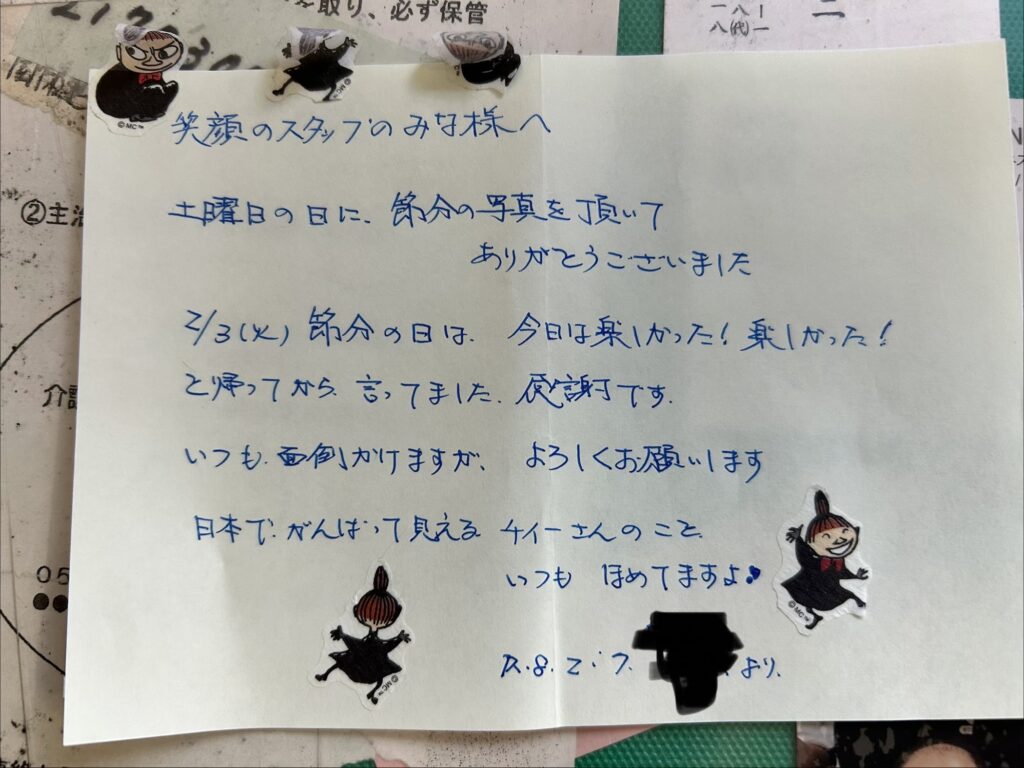 ～取り、必ず保管
二
②主治
笑顔のスタッフのみな様へ
土曜日の日に、節分の写真を頂いて
ありがとうございました
2/3(火) 節分の日は、今日は楽しかった！楽しかった！
と帰ってから、言ってました、感謝です。
介護
いつも、面倒かけますが、よろしくお願いします
日本で、がんばって見える チィーさんのこと、
いつも ほめてますよ
05
R.8.2.7. より。